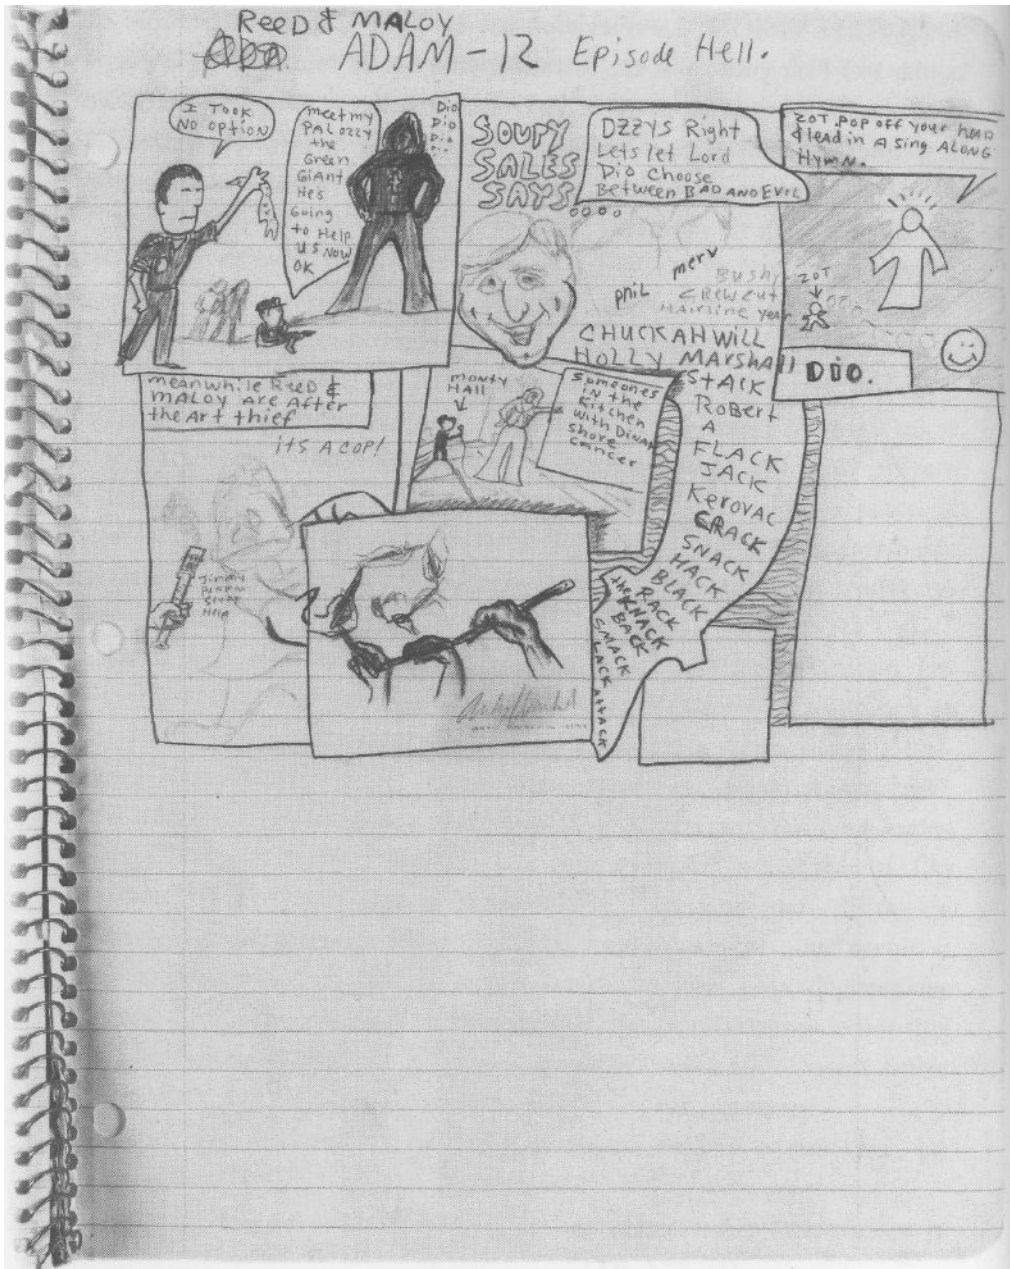 ReeD & MALOY
ADAM - 12 Episode Hell.
I TOOK
NO OPTION
meet my
PAL OZZY
the
Green
GIANT
He's
Going
to Help
US NOW
OK
Dio
Dio
Dio
Dio
SOUPY
SALES
SAYS....
OZZYS Right
Lets let Lord
Dio Choose
Between BAD AND EVIL
ZOT POP OFF your HEAD
& lead in A Sing ALONG
Hymn.
merv
phil
Bushy
CREWCUT
HAIRLINE year
ZOT
CHUCKAHWILL
HOLLY MarshaLL
STACK
RoBert
A
FLACK
JACK
Kerovac
CRACK
SNACK
HACK
BLACK
RACK
the KNACK
BACK
SMACK
LACK
ATTACK
DIO.
meanwhile ReeD &
MALOY are AFter
the Art thief
ITS A COP!
MONTY
HAll
Someones
in the
Kitchen
with DINAH
shore
cancer
Jimmy
Help